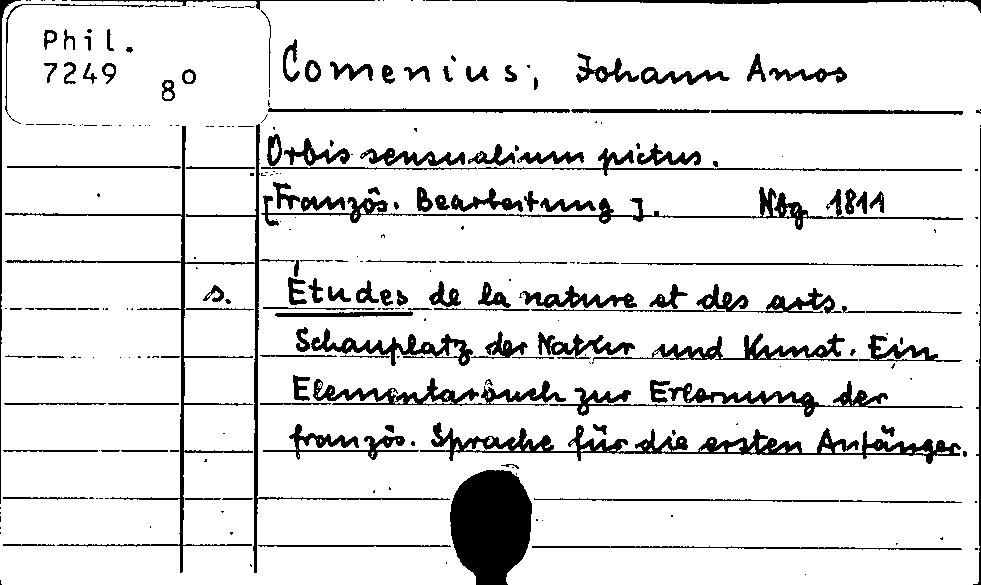 Phil.
7249 8°
Comenius, Johann Amos
Orbis sensualium pictus.
[Französ. Bearbeitung]. Nbg 1811
s. Études de la nature et des arts.
Schauplatz der Natur und Kunst. Ein
Elementarbuch zur Erlernung der
französ. Sprache für die ersten Anfänger.